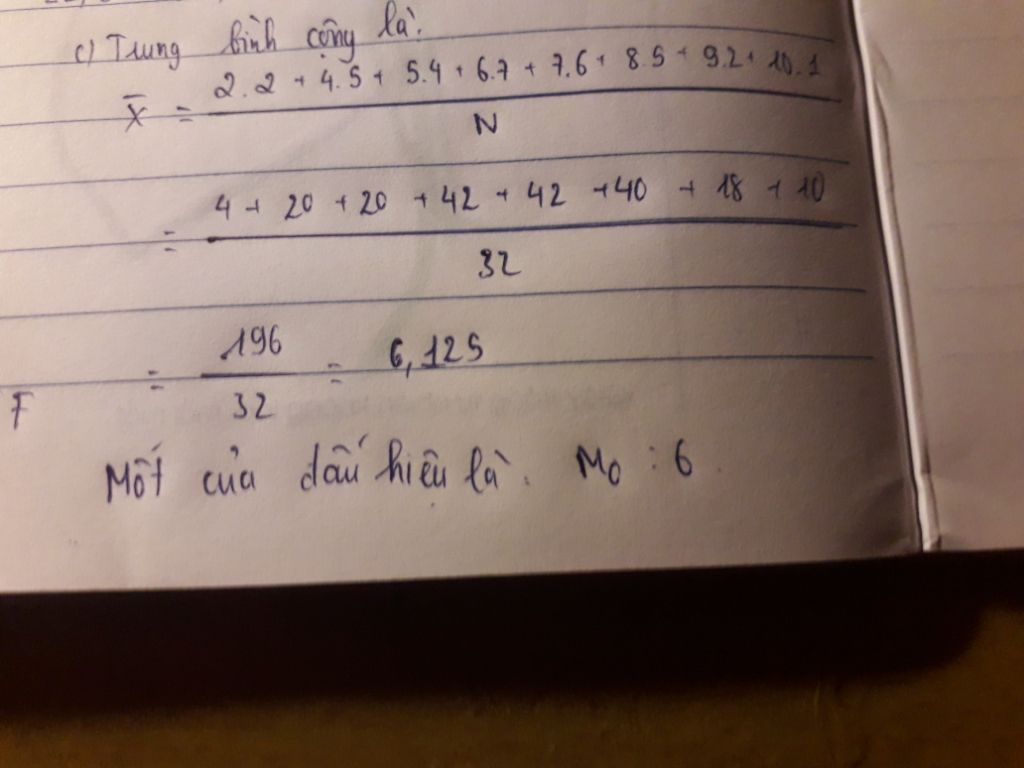 c) Trung bình cộng là:
X̄ = 2.2 + 4.5 + 5.4 + 6.7 + 7.6 + 8.5 + 9.2 + 10.1
N
= 4 + 20 + 20 + 42 + 42 + 40 + 18 + 10
32
= 196 = 6,125
32
F
Mốt của dấu hiệu là. Mo : 6.